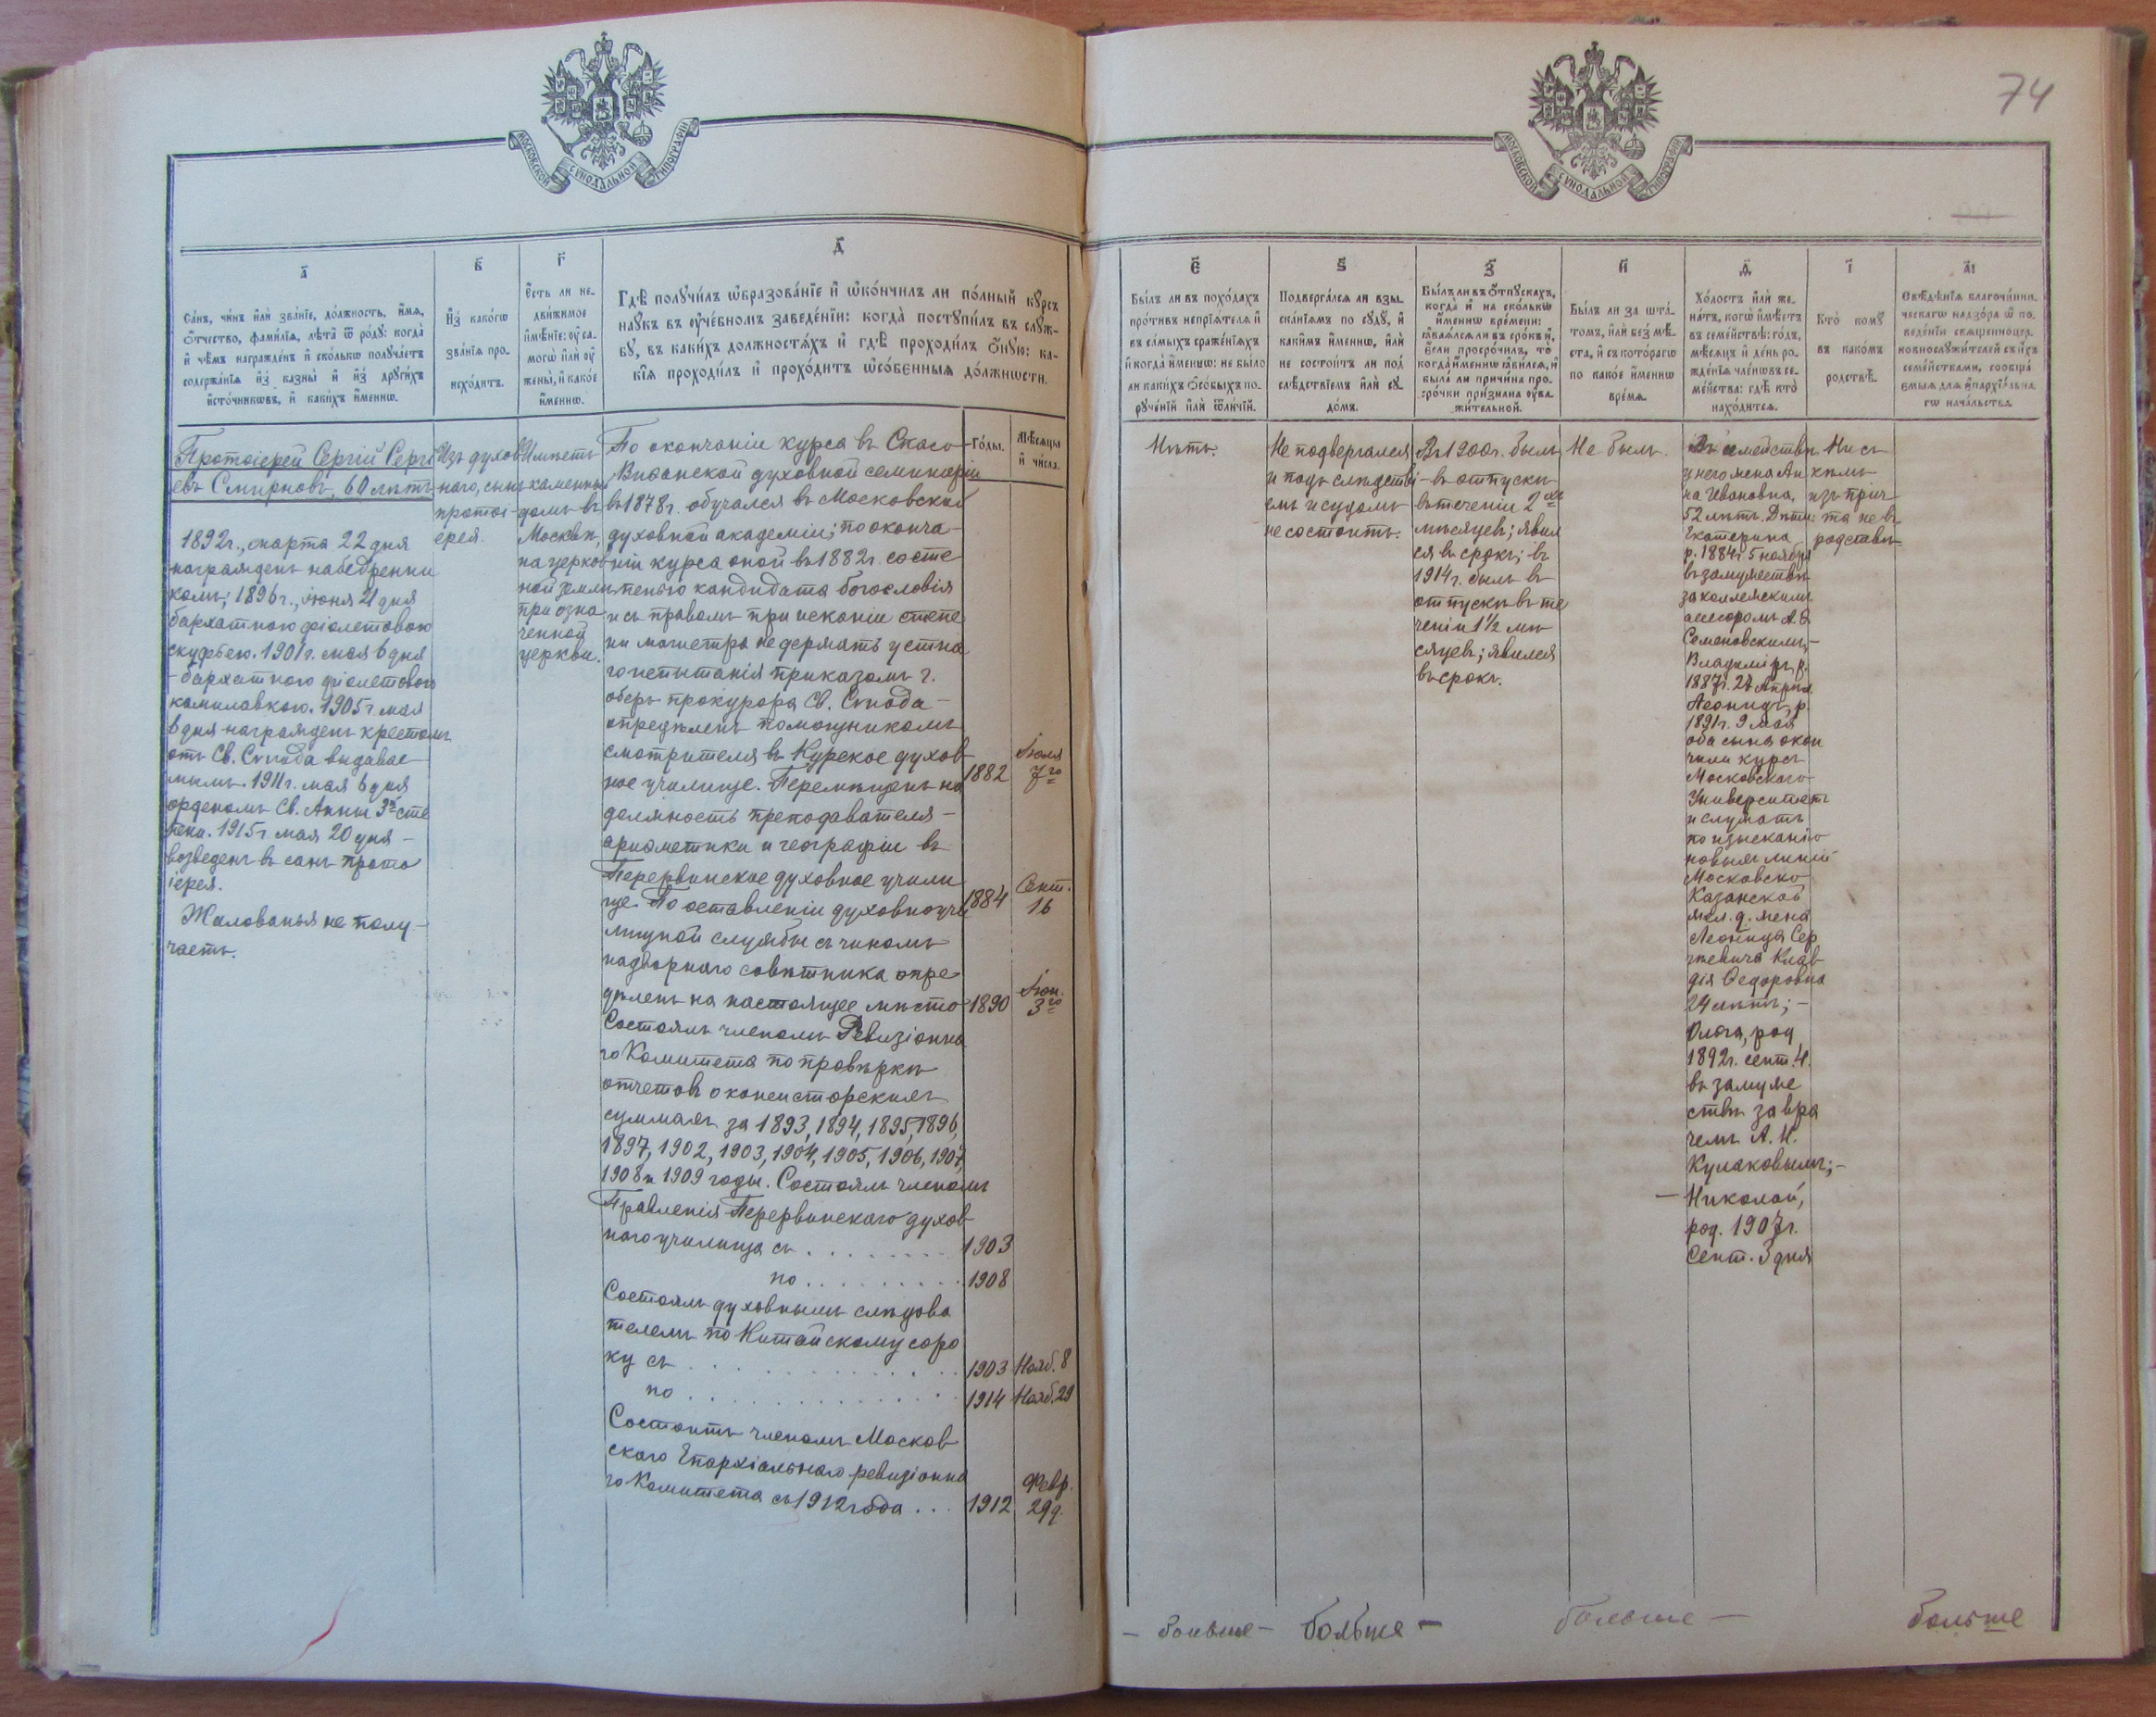 МОСКОВСКОЙ СѴНОДАЛЬНОЙ ТИПОГРАФІИ
а҃
Са́нъ, чи́нъ и҆лѝ зва́нїе, до́лжность, и҆́мѧ,
ѻ҆́тчество, фами́лїѧ, лѣ́та ѿ ро́дꙋ: когда̀
и҆ чѣ́мъ награжде́нъ и҆ ско́лькѡ полꙋча́етъ
содержа́нїѧ и҆з̾ казны̀ и҆ и҆з̾ дрꙋги́хъ
и҆сто́чникѡвъ, и҆ каки́хъ и҆́меннѡ.
в҃
И҆з̾ како́гѡ
зва́нїѧ про-
исхо́дитъ.
г҃
Є҆́сть ли не-
дви́жимое
и҆мѣ́нїе: ᲂу҆ са-
могѡ̀ и҆лѝ ᲂу҆
жены̀, и҆ како́е
и҆́меннѡ.
д҃
Гдѣ̀ полꙋчи́лъ ѡ҆бразова́нїе и҆ ѡ҆ко́нчилъ ли по́лный кꙋ́рсъ
наꙋ́къ въ ᲂу҆че́бномъ заведе́нїи: когда̀ постꙋпи́лъ въ слꙋ́ж-
бꙋ, въ каки́хъ должностѧ́хъ и҆ гдѣ̀ проходи́лъ ѻ҆́нꙋю: ка-
кі̑ѧ проходи́лъ и҆ прохо́дитъ ѡ҆со́бенныѧ до́лжнѡсти.
Го́ды.
Мѣ́сѧцы
и҆ чи́сла.
Протоіерей Сергій Серги
евъ Смирновъ, 60 лѣтъ
1892 г., марта 22 дня
награжденъ набедренни
комъ; 1896 г., іюня 21 дня
бархатною фіолетовою
скуфьею. 1901 г. мая 6 дня
- бархатною фіолетовою
камилавкою. 1905 г. мая
6 дня награжденъ крестомъ
отъ Св. Сѵнода выдавае-
мымъ. 1911 г. мая 6 дня
орденомъ Св. Анны 3й сте
пени. 1915 г. мая 20 дня -
возведенъ въ санъ прото
іерея.
Жалованья не полу-
чаетъ.
Изъ духов
наго, сынъ
протоі-
ерея.
Имѣетъ
каменный
домъ въ
Москвѣ,
на церков
ной землѣ
при озна
ченной
церкви.
По окончаніи курса въ Спасо-
Виѳанской духовной семинаріи
въ 1878 г. обучался въ Московской
духовной академіи; по оконча-
ніи курса оной въ 1882 г. со сте
пенью кандидата богословія
и съ правомъ при исканіи степе
ни магистра не держать устна
го испытанія приказомъ г.
оберъ прокурора Св. Сѵнода -
опредѣленъ помощникомъ
смотрителя въ Курское духов
ное училище. Перемѣщенъ на
1882
Іюля
7го
должность преподавателя -
ариѳметики и географіи въ
Перервинское духовное учили
ще. По оставленіи духовноучи
1884
Сент.
16
лищной службы съ чиномъ
надворнаго совѣтника опре
дѣленъ на настоящее мѣсто
1890
Іюн.
3го
Состоялъ членомъ Ревизіонна
го Комитета по провѣркѣ
отчетовъ о консисторскихъ
суммахъ за 1893, 1894, 1895, 1896,
1897, 1902, 1903, 1904, 1905, 1906, 1907,
1908 и 1909 годы. Состоялъ членомъ
Правленія Перервинскаго духов
наго училища съ . . . . . . . . 1903
по . . . . . . . . . 1908
Состоялъ духовнымъ слѣдова
телемъ по Китайскому соро
ку съ . . . . . . . . . . . . 1903 Нояб. 8
по . . . . . . . . . . . . 1914 Нояб. 29
Состоитъ членомъ Москов
скаго Епархіальнаго ревизіонна
го Комитета съ 1912 года . . . 1912
Февр.
29 д.
74
МОСКОВСКОЙ СѴНОДАЛЬНОЙ ТИПОГРАФІИ
є҃
Бы́лъ ли въ похо́дахъ
про́тивъ непрїѧ́телѧ и҆
въ са́мыхъ сраже́нїѧхъ
и҆ когда̀ и҆́меннѡ: не бы́ло
ли каки́хъ ѻ҆со́быхъ по-
рꙋче́нїй и҆лѝ ѿли́чїй.
ѕ҃
Подверга́лсѧ ли взы-
ска́нїѧмъ по сꙋдꙋ̀, и҆
каки́мъ и҆́меннѡ, и҆лѝ
не состои́тъ ли под̾
слѣ́дствїемъ и҆лѝ сꙋ-
до́мъ.
з҃
Бы́лъ ли въ ѻ҆́тпꙋскахъ,
когда̀ и҆ на ско́лькѡ
и҆́меннѡ вре́мени:
ꙗ҆влѧ́лсѧ ли въ сро́къ и҆,
є҆́сли просро́чилъ, то̀
когда̀ и҆́меннѡ ꙗ҆ви́лсѧ, и҆
была̀ ли причи́на про-
сро́чки при́знана ᲂу҆ва-
жи́тельной.
и҃
Бы́лъ ли за шта́-
томъ, и҆лѝ без̾ мѣ́-
ста, и҆ съ кото́рагѡ
по како́е и҆́меннѡ
вре́мѧ.
ѳ҃
Хо́лостъ и҆лѝ же-
на́тъ, когѡ̀ и҆мѣ́етъ
въ семе́йствѣ: го́дъ,
мѣ́сѧцъ и҆ де́нь ро-
жде́нїѧ чле́нѡвъ се-
ме́йства: гдѣ̀ кто̀
нахо́дитсѧ.
і҃
Кто̀ комꙋ̀
въ како́мъ
родствѣ̀.
а҃і
Свѣ́дѣнїѧ благочи́нни-
ческагѡ надзо́ра ѡ҆ по-
веде́нїи свѧщенноцер-
ковнослꙋжи́телей съ и҆́хъ
семе́йствами, сообща́-
ємыѧ длѧ є҆пархїа́льна-
гѡ нача́льства.
Нѣтъ.
Не подвергался
и подъ слѣдстві-
емъ и судомъ
не состоитъ.
Въ 1900 г. былъ
- въ отпуску
въ теченіи 2хъ
мѣсяцевъ; явил
ся въ срокъ; въ
1914 г. былъ въ
отпуску въ те
ченіи 1½ мѣ
сяцевъ; явился
въ срокъ.
Не былъ.
Въ семействѣ
у него жена Ан
на Ивановна,
52 лѣтъ. Дѣти:
Екатерина
р. 1884 г. 5 ноября
въ замужествѣ
за коллежскимъ
ассесоромъ А. Ѳ.
Семеновскимъ, -
Владиміръ, р.
1887 г. 24 Апрѣл.
Леонидъ, р.
1891 г. 9 мая
оба сына окон
чили курсъ
Московскаго
Университета
и служатъ
по изысканію
новыхъ линій
Московско
Казанской
жел. д. жена
Леонида Сер
гѣевича Клав
дія Ѳедоровна
24 лѣтъ; -
Ольга, род
1892 г. сент. 4.
въ замуже
ствѣ за вра
чемъ А. Н.
Кулаковымъ; -
- Николай,
род. 1907 г.
Сент. 3 дня
Ни съ
кѣмъ
изъ прич-
та не въ
родствѣ.
- больше - больше - больше - больше